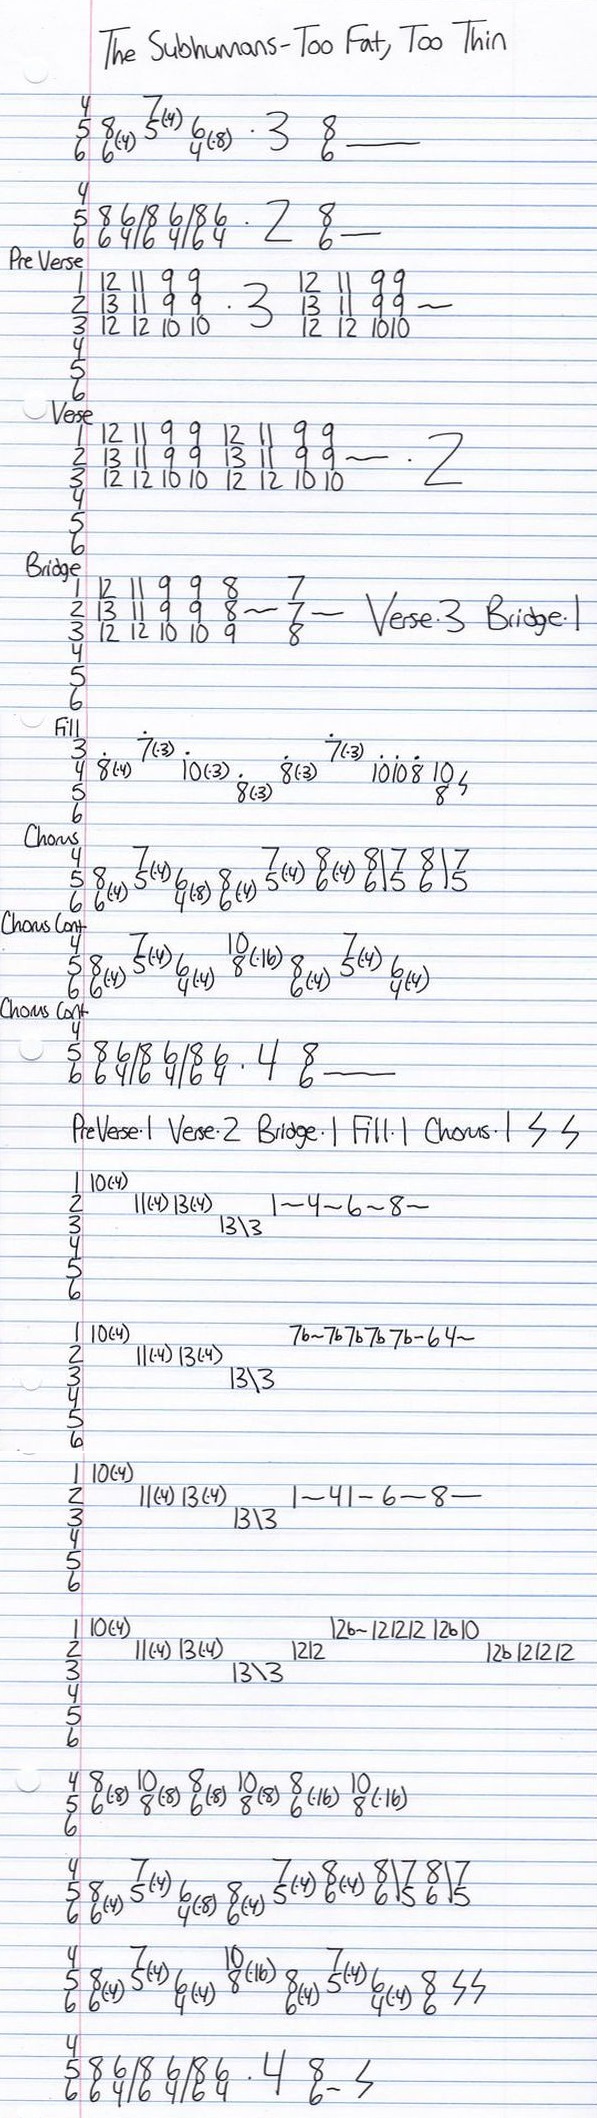 The Subhumans-Too Fat, Too Thin
4 7(·4)
5 8(·4) 5 6(·8) · 3 8
6 6 4 6 ———
4
5 8 6/8 6/8 6 · 2 8
6 6 4/6 4/6 4 6 —
Pre Verse
1 12 11 9 9 12 11 9 9
2 13 11 9 9 · 3 13 11 9 9 ~
3 12 12 10 10 12 12 10 10
4
5
6
Verse
1 12 11 9 9 12 11 9 9
2 13 11 9 9 13 11 9 9 — · 2
3 12 12 10 10 12 12 10 10
4
5
6
Bridge
1 12 11 9 9 8 7
2 13 11 9 9 8 — 7 — Verse·3 Bridge·1
3 12 12 10 10 9 8
4
5
6
Fill
3 7(·3) 7(·3)
4 8(·4) 10(·3) 8(·3) 10 10 8 10
5 8(·3) 8 ϟ
6
Chorus
4 7 7 8 8\7 8\7
5 8 5(·4) 6 8 5(·4) 6(·4) 6\5 6\5
6 6(·4) 4(·8) 6(·4)
Chorus Cont
4 7 10 7
5 8 5(·4) 6 8(·16) 8 5(·4) 6
6 6(·4) 4(·4) 6(·4) 4(·4)
Chorus Cont
4
5 8 6/8 6/8 6 · 4 8
6 6 4/6 4/6 4 6 ———
PreVerse·1 Verse·2 Bridge·1 Fill·1 Chorus·1 ϟ ϟ
1 10(·4)
2 11(·4) 13(·4) 1~4~6~8~
3 13\3
4
5
6
1 10(·4) 7b~7b 7b 7b 7b-6 4~
2 11(·4) 13(·4)
3 13\3
4
5
6
1 10(·4)
2 11(·4) 13(·4) 1~41-6~8—
3 13\3
4
5
6
1 10(·4) 12b~ 12 12 12 12b 10
2 11(·4) 13(·4) 12 12 12b 12 12 12
3 13\3
4
5
6
4 8 10 8 10 8 10
5 6(·8) 8(·8) 6(·8) 8(·8) 6(·16) 8(·16)
6
4 7 7 8 8\7 8\7
5 8 5(·4) 6 8 5(·4) 6(·4) 6\5 6\5
6 6(·4) 4(·8) 6(·4)
4 7 10 7
5 8 5(·4) 6 8(·16) 8 5(·4) 6 8 ϟ ϟ
6 6(·4) 4(·4) 6(·4) 4(·4) 6
4
5 8 6/8 6/8 6 · 4 8
6 6 4/6 4/6 4 6 - ϟ